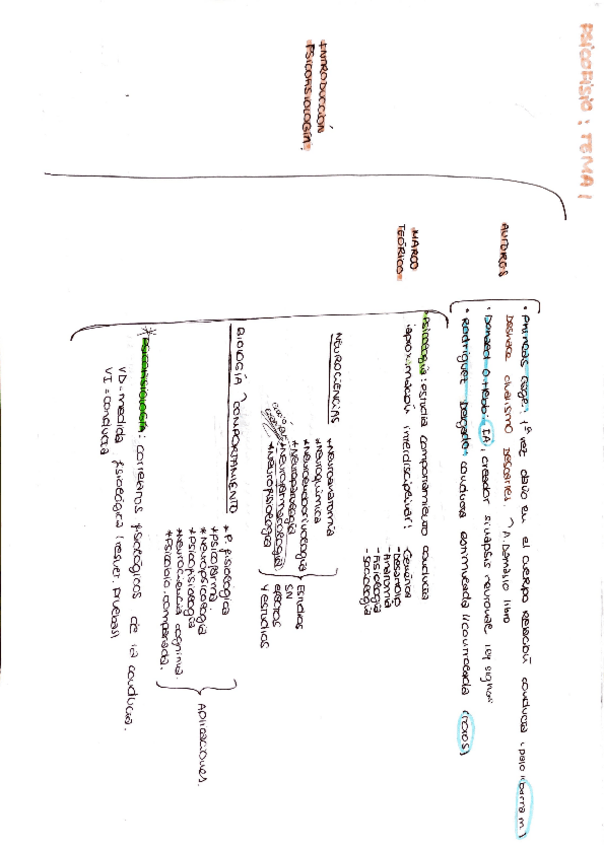 PSICOFISIO: TEMA 1
INTRODUCCIÓN
PSICOFISIOLOGÍA
AUTORES
• Phineas Gage: 1ª vez daño en el cuerpo relación conducta, palo "barra m."
Desmote dualismo Descartes. A. Damasio libro
• Donald O Hebb: IA, creador sinapsis neuronal
• Rodríguez Delgado: conducta estimulada/controlada (toros)
MARCO
TEÓRICO
Psicología: estudia comportamiento conducta
- aproximación interdisciplinar: Genética
- Desarrollo
- Anatomía
- Fisiología
- Sociología
NEUROCIENCIAS
* Neuroanatomía
* Neuroquímica
* Neuroendocrinología
* Neuropatología
* Neurofarmacología
* Neurofisiología
Estudios
SN
efectos
y estudios
BIOLOGÍA ~ COMPORTAMIENTO
* P. fisiológica
* Psicofarma.
* Neuropsicología
* Psicofisiología
* Neurociencia cognitiva.
* Psicobio. comparada.
Aplicaciones.
* PSICOFISIOLOGÍA: correlatos fisiológicos de la conducta.
VD = medida fisiológica (resuer. pruebas)
VI = conducta